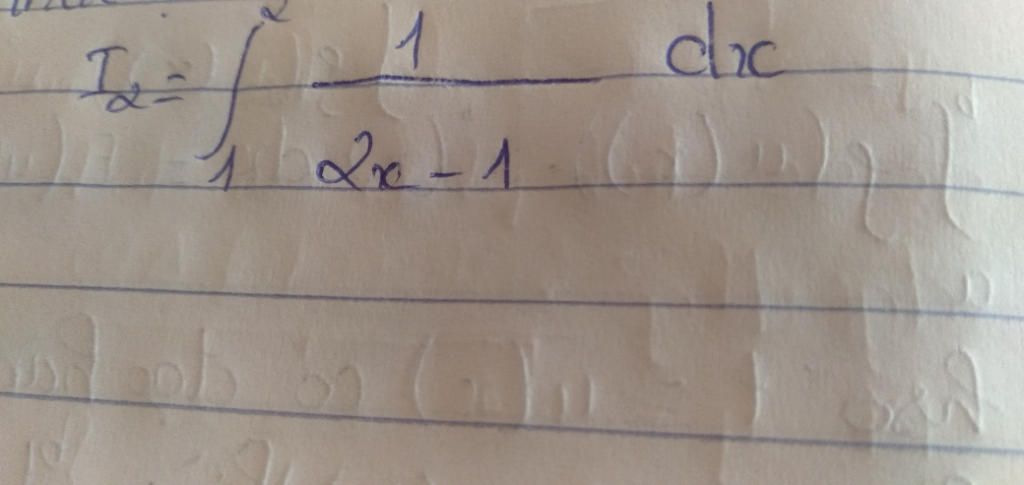 I₂ = ∫₁² 1/(2x - 1) dx